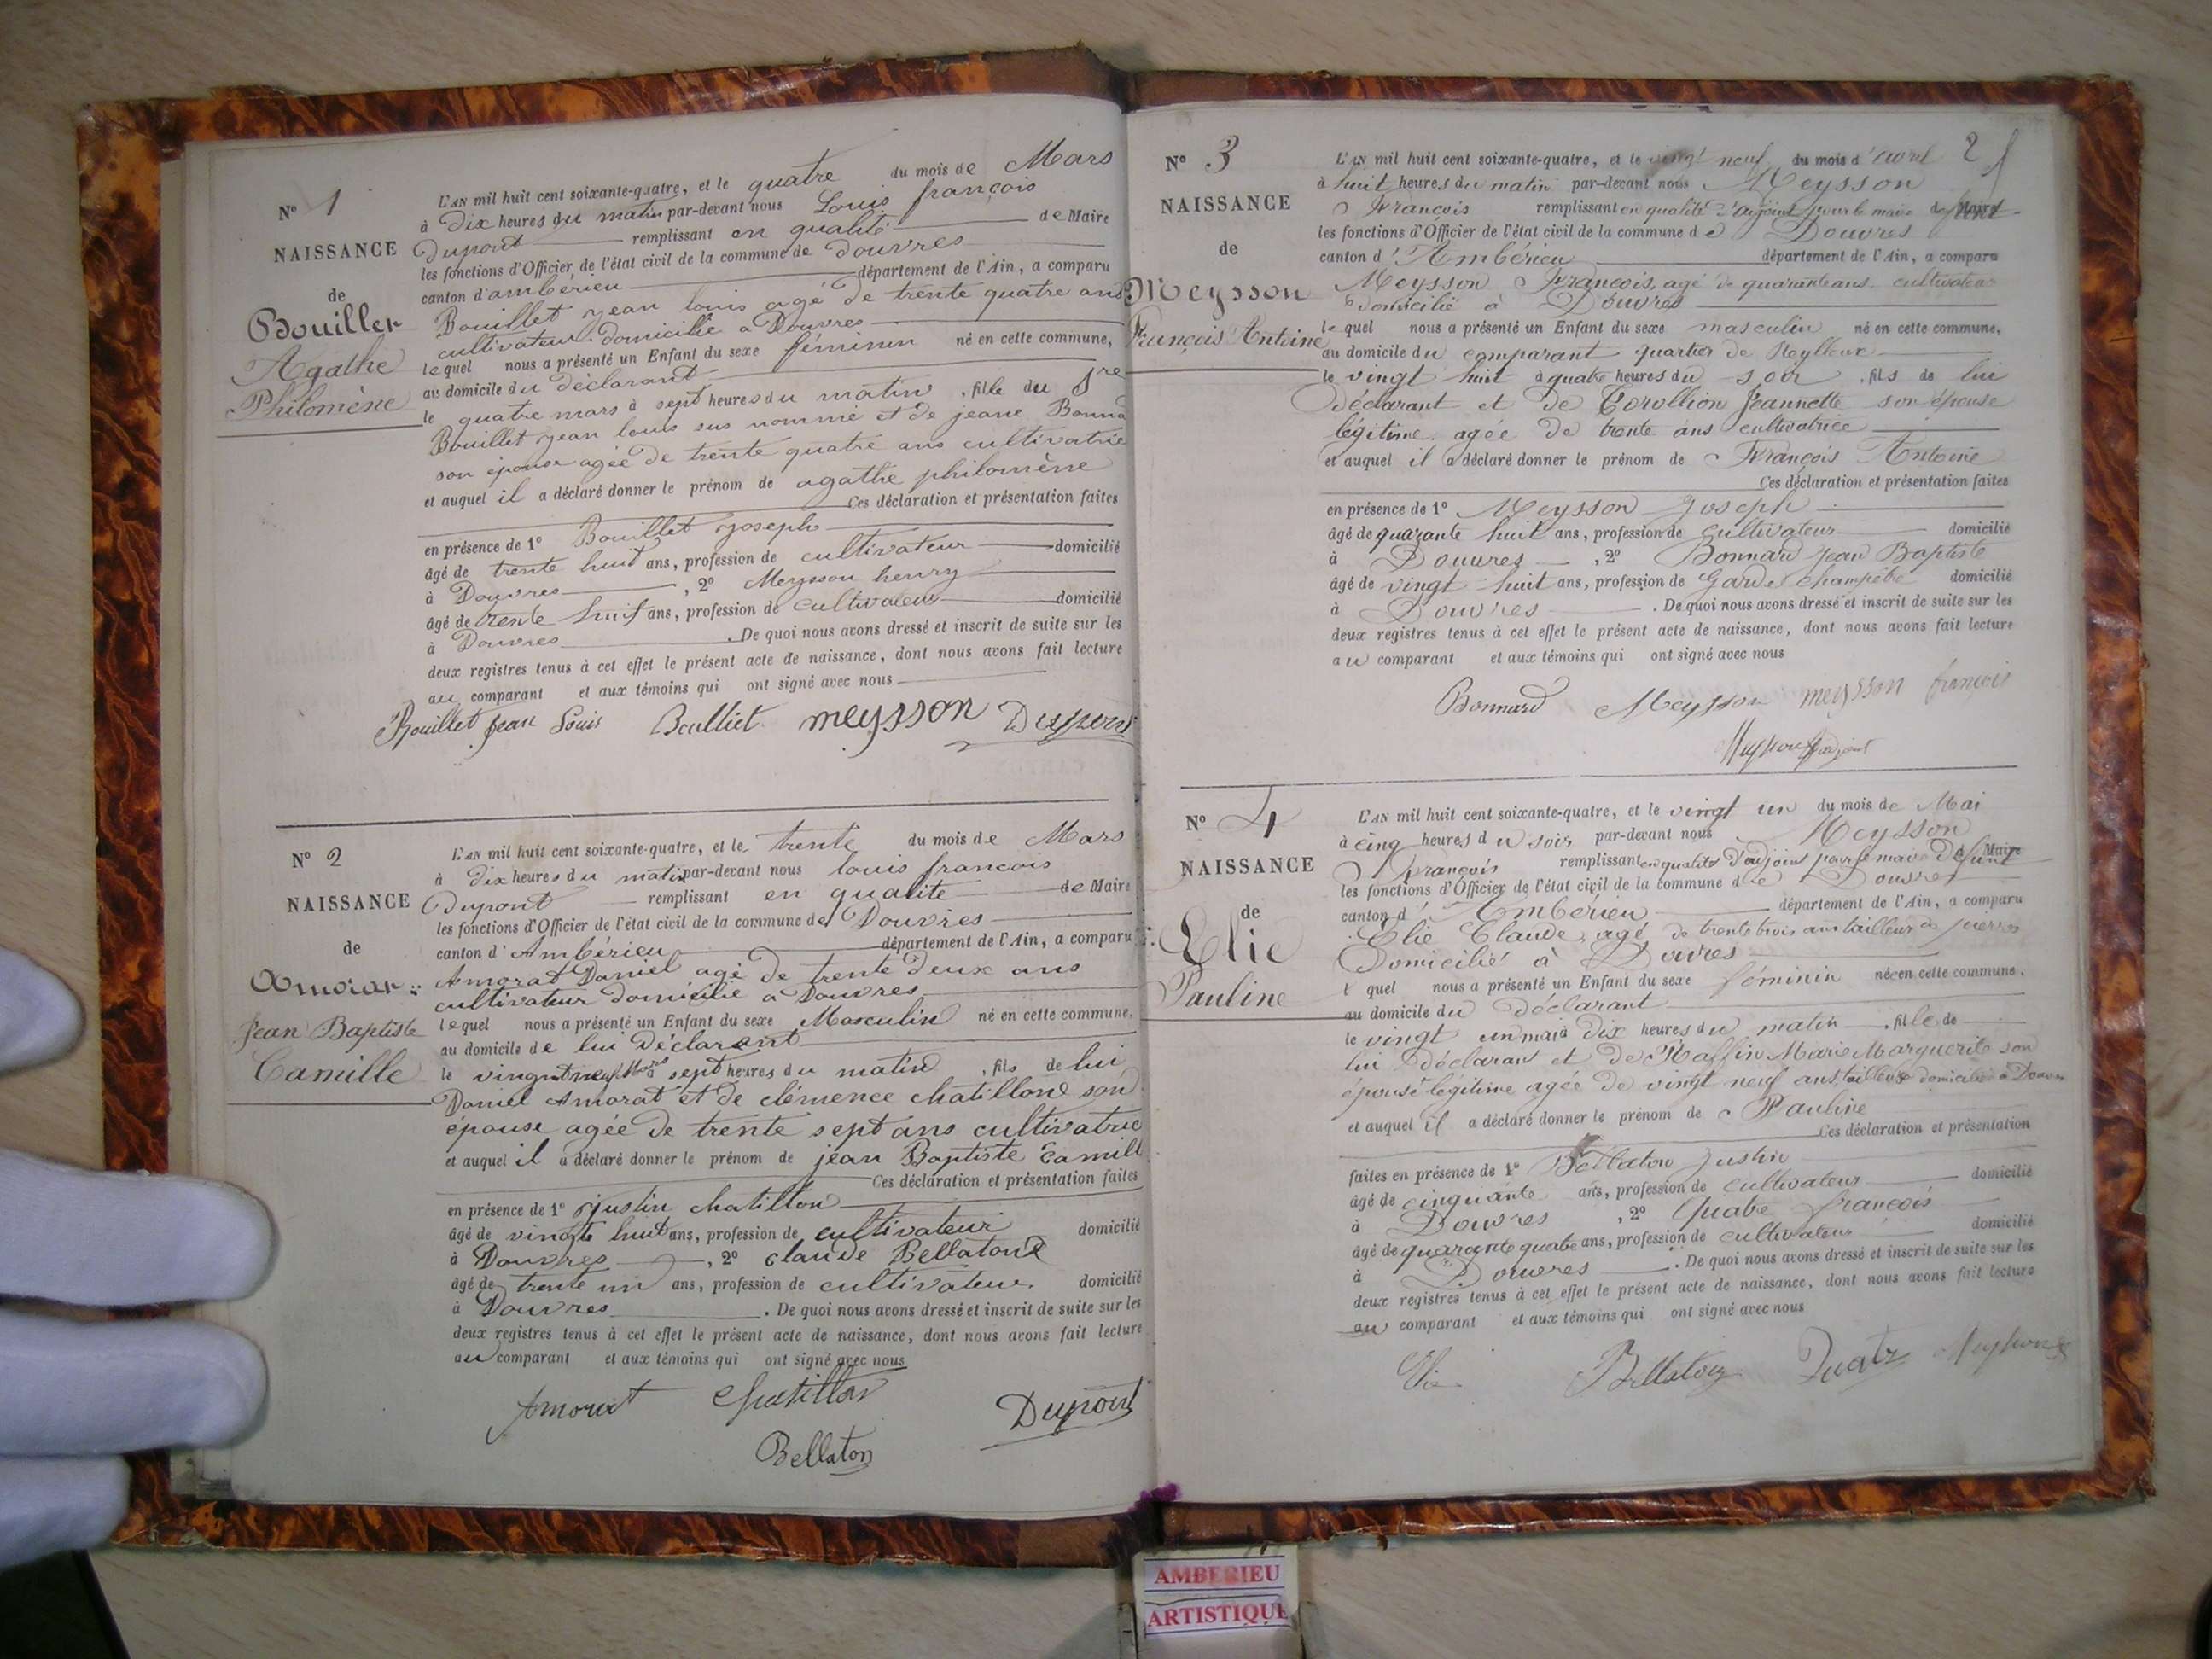 N° 1
NAISSANCE
de
Bouillet
Agathe
Philomène
L'AN mil huit cent soixante-quatre, et le quatre du mois de Mars
à Dix heures du matin par-devant nous Louis françois
Dupont remplissant en qualité de Maire
les fonctions d'Officier de l'état civil de la commune de Douvres
canton d'ambérieu département de l'Ain, a comparu
Bouillet jean louis agé de trente quatre ans
cultivateur domicilié a Douvres
lequel nous a présenté un Enfant du sexe féminin né en cette commune,
au domicile du déclarant
le quatre mars à sept heures du matin, fille du 1re
Bouillet jean louis sus nommé et de jeane Bonna
son épouse agée de trente quatre ans cultivatrice
et auquel il a déclaré donner le prénom de agathe philomène
Ces déclaration et présentation faites
en présence de 1° Bouillet joseph
âgé de trente huit ans, profession de cultivateur domicilié
à Douvres, 2° Meysson henry
âgé de trente huit ans, profession de cultivateur domicilié
à Douvres. De quoi nous avons dressé et inscrit de suite sur les
deux registres tenus à cet effet le présent acte de naissance, dont nous avons fait lecture
au comparant et aux témoins qui ont signé avec nous
Bouillet Jean Louis Boulliet meysson Dupont
N° 2
NAISSANCE
de
Amorat
Jean Baptiste
Camille
L'AN mil huit cent soixante-quatre, et le trente du mois de Mars
à dix heures du matin par-devant nous louis francois
Dupont remplissant en qualité de Maire
les fonctions d'Officier de l'état civil de la commune de Douvres
canton d'Ambérieu département de l'Ain, a comparu
Amorat Daniel agé de trente deux ans
cultivateur domicilié a Douvres
lequel nous a présenté un Enfant du sexe Masculin né en cette commune,
au domicile de lui déclarant
le vingt neuf Mars à sept heures du matin, fils de lui
Daniel Amorat et de clémence chatillond son
épouse agée de trente sept ans cultivatrice
et auquel il a déclaré donner le prénom de jean Baptiste Camill
Ces déclaration et présentation faites
en présence de 1° justin chatillon
âgé de vingt huit ans, profession de cultivateur domicilié
à Douvres, 2° claude Bellatond
âgé de trente un ans, profession de cultivateur domicilié
à Douvres. De quoi nous avons dressé et inscrit de suite sur les
deux registres tenus à cet effet le présent acte de naissance, dont nous avons fait lecture
au comparant et aux témoins qui ont signé avec nous
Amorat Chatillon Dupont
Bellaton
2
N° 3
NAISSANCE
de
Meysson
François Antoine
L'AN mil huit cent soixante-quatre, et le vingt neuf du mois d'avril
à huit heures du matin par-devant nous Meysson
François remplissant en qualité d'adjoint pour le maire défunt
les fonctions d'Officier de l'état civil de la commune de Douvres
canton d'Ambérieu département de l'Ain, a comparu
Meysson François, agé de quarante ans cultivateur
domicilié à Douvres
lequel nous a présenté un Enfant du sexe masculin né en cette commune,
au domicile du comparant quartier de
le vingt huit à quatre heures du soir, fils de lui
déclarant et de Jeannette son épouse
légitime agée de trente ans cultivatrice
et auquel il a déclaré donner le prénom de François Antoine
Ces déclaration et présentation faites
en présence de 1° Meysson Joseph
âgé de quarante huit ans, profession de cultivateur domicilié
à Douvres, 2° Bonnard Jean Baptiste
âgé de vingt huit ans, profession de Garde champêtre domicilié
à Douvres. De quoi nous avons dressé et inscrit de suite sur les
deux registres tenus à cet effet le présent acte de naissance, dont nous avons fait lecture
au comparant et aux témoins qui ont signé avec nous
Bonnard Meysson meysson francois
Meysson adjoint
N° 4
NAISSANCE
de
Elie
Pauline
L'AN mil huit cent soixante-quatre, et le vingt un du mois de Mai
à cinq heures du soir par-devant nous Meysson
François remplissant en qualité d'adjoint pour le maire défunt
les fonctions d'Officier de l'état civil de la commune de Douvres
canton d'Ambérieu département de l'Ain, a comparu
Elie Claude, agé de trente trois ans tailleur de pierres
Domicilié à Douvres
lequel nous a présenté un Enfant du sexe féminin né en cette commune,
au domicile du déclarant
le vingt un mai à dix heures du matin, fille de
lui déclarant et de Raffin Marie Marguerite son
épouse légitime agée de vingt neuf ans, domiciliée a Douvres
et auquel il a déclaré donner le prénom de Pauline
Ces déclaration et présentation
faites en présence de 1° Bellaton Justin
âgé de cinquante ans, profession de cultivateur domicilié
à Douvres, 2° Quatre françois
âgé de quarante quatre ans, profession de cultivateur domicilié
à Douvres. De quoi nous avons dressé et inscrit de suite sur les
deux registres tenus à cet effet le présent acte de naissance, dont nous avons fait lecture
au comparant et aux témoins qui ont signé avec nous
Elie Bellaton Quatre Meysson
AMBERIEU
ARTISTIQUE